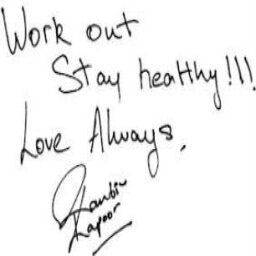 Work out
Stay healthy!!!
Love Always,
Ranbir
Kapoor